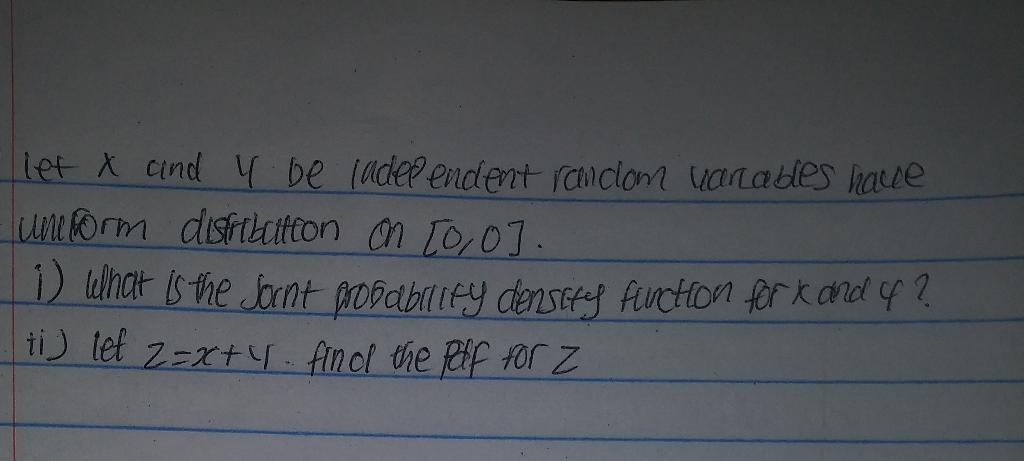 let x and y be independent random variables have
uniform distribution on [0,0].
i) What is the Joint probability density function for x and y?
ii) let z=x+y. find the Pdf for z